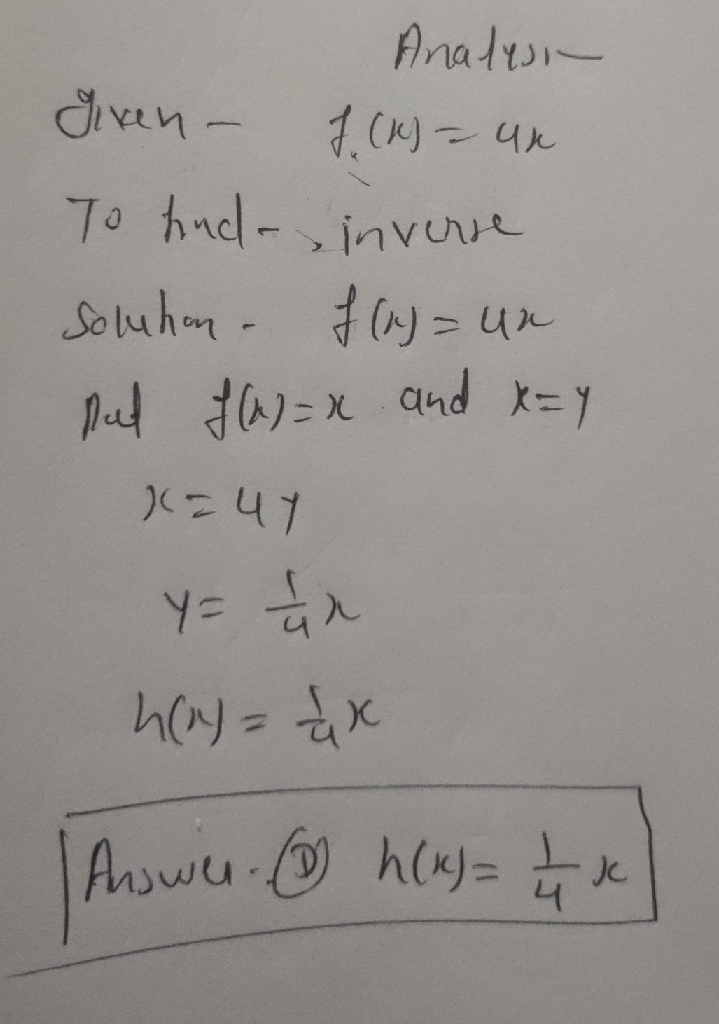 Analysis
Given - f(x) = 4x
To find - inverse
Solution - f(x) = 4x
Put f(x) = x and x = y
x = 4y
y = 1/4 x
h(x) = 1/4 x
Answer. Ⓓ h(x) = 1/4 x